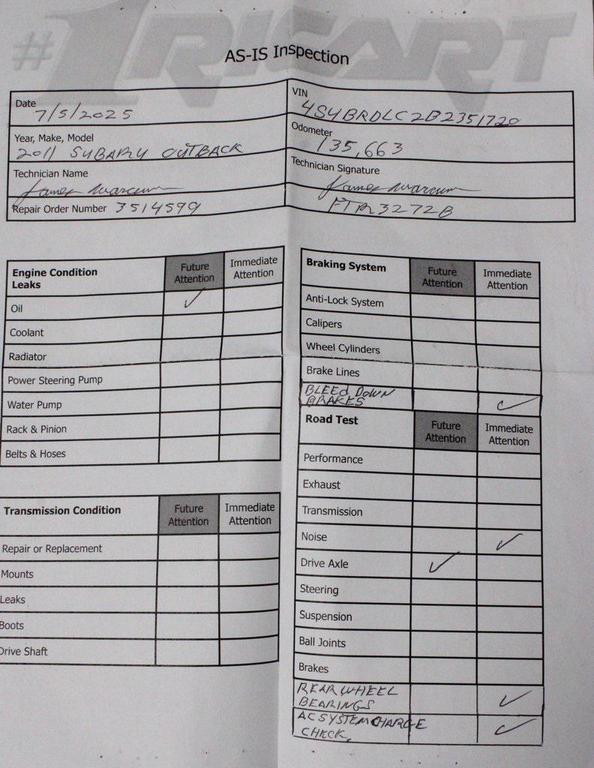 #1 RICART
AS-IS Inspection
Date 7/5/2025
VIN 4S4BRDLC2B2351720
Year, Make, Model 2011 SUBARU OUTBACK
Odometer 135,663
Technician Name
Technician Signature
Repair Order Number 3514599
FTR3272B
Engine Condition Leaks Future Attention Immediate Attention
Oil ✓
Coolant
Radiator
Power Steering Pump
Water Pump
Rack & Pinion
Belts & Hoses
Transmission Condition Future Attention Immediate Attention
Repair or Replacement
Mounts
Leaks
Boots
Drive Shaft
Braking System Future Attention Immediate Attention
Anti-Lock System
Calipers
Wheel Cylinders
Brake Lines
BLEED DOWN
BRAKES ✓
Road Test Future Attention Immediate Attention
Performance
Exhaust
Transmission
Noise ✓
Drive Axle ✓
Steering
Suspension
Ball Joints
Brakes
REAR WHEEL
BEARINGS ✓
AC SYSTEM CHARGE
CHECK. ✓